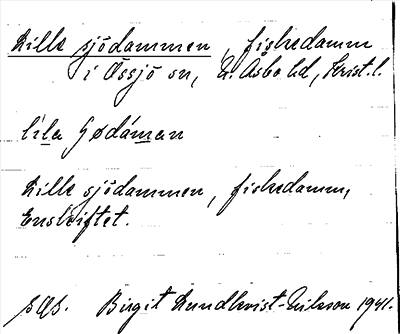 Lille sjödammen, fiskedamm
i Össjö sn, N. Åsbo hd, Krist. l.
lila Sødáman
Lille sjödammen, fiskedamm,
Enskiftet.
Birgit Lundkvist-Erikson 1941.